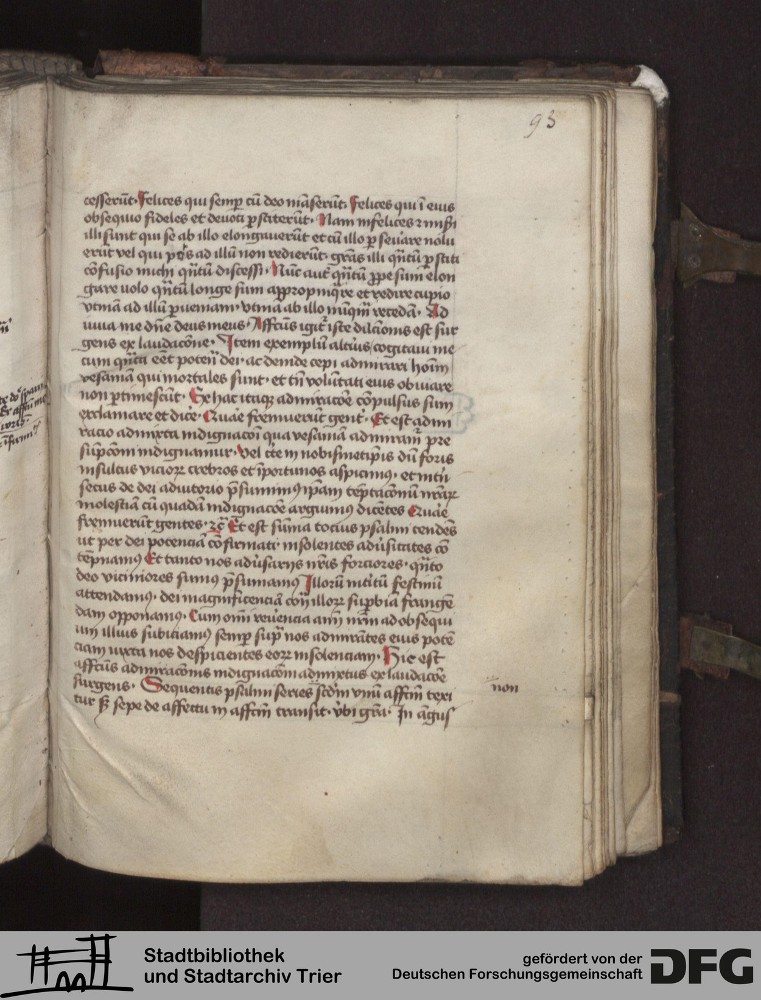 93
cesserūt. Felices qui semp cū deo māserūt. Felices qui ī eius
obsequio fideles et deuoti pstiterūt. Nam infelices
illi sunt qui se ab illo elongauerūt et cū illo pseuāre nolu
erūt vel qui ad illū non redierūt. grās illi qn̄tū pstiti
cōfusio michi qn̄tū discessi. Nūc aut qn̄tū ppe sum elon
gare uolo qn̄tū longe sum appropinqre et redire cupio
vtinā ad illū pueniam. vtinā ab illo nūqm recedā. Ad
iuua me dn̄e deus meus. Affcūs igit iste dilcōnis est sur
gens ex laudacōne. Item exemplū altius cogitaui me
cum qn̄ta eēt poten dei. ac deinde cepi admirari hoīm
vesaniam qui mortales sunt. et tn̄ volūtati eius obuiare
non ptimescūt. Ex hac itaqʒ admiracōe cōpulsus sum
exclamare et dice. Quare fremuerūt gent. Et est admi
racio admixta indignacōi qua vesaniā admiram pre
sūpcōm indignamur. Vel cte in nobismetipis dū foris
insultus vicioꝝ crebros et īportunos aspicimꝰ. et intri
secus de dei adiutorio psumimꝰ ipam tēptacōnū nr̄aꝝ
molestiā cū quadā indignacōe arguimꝰ dicētes Quare
fremuerūt gentes. ⁊c̄ Et est sūma tocius psalmi tendēs
ut per dei potenciā cōfirmati insolentes adūsitates cō
tēpnamꝰ Et tanto nos adūsarijs nr̄is forciores. qn̄to
deo viciniores sumꝰ psumamꝰ Illorū intuitū festinū
attendamꝰ. dei magnificenciā cont illoꝝ supbiā frangē
dam opponamꝰ. Cum omī reuencia aīm nr̄m ad obsequi
um illius subiciamꝰ semp sup nos admirātes eius potē
ciam iuxta nos despicientes eoꝝ insolenciam. Hic est
affcūs admiracōnis indignacōni admixtus ex laudacōe
surgens. Sequentis psalmi series scdm vnū affcm texi
tur sʒ sepe de affectu in affcm transit. vbi grā. In āgus
non
Stadtbibliothek
und Stadtarchiv Trier
gefördert von der
Deutschen Forschungsgemeinschaft
DFG